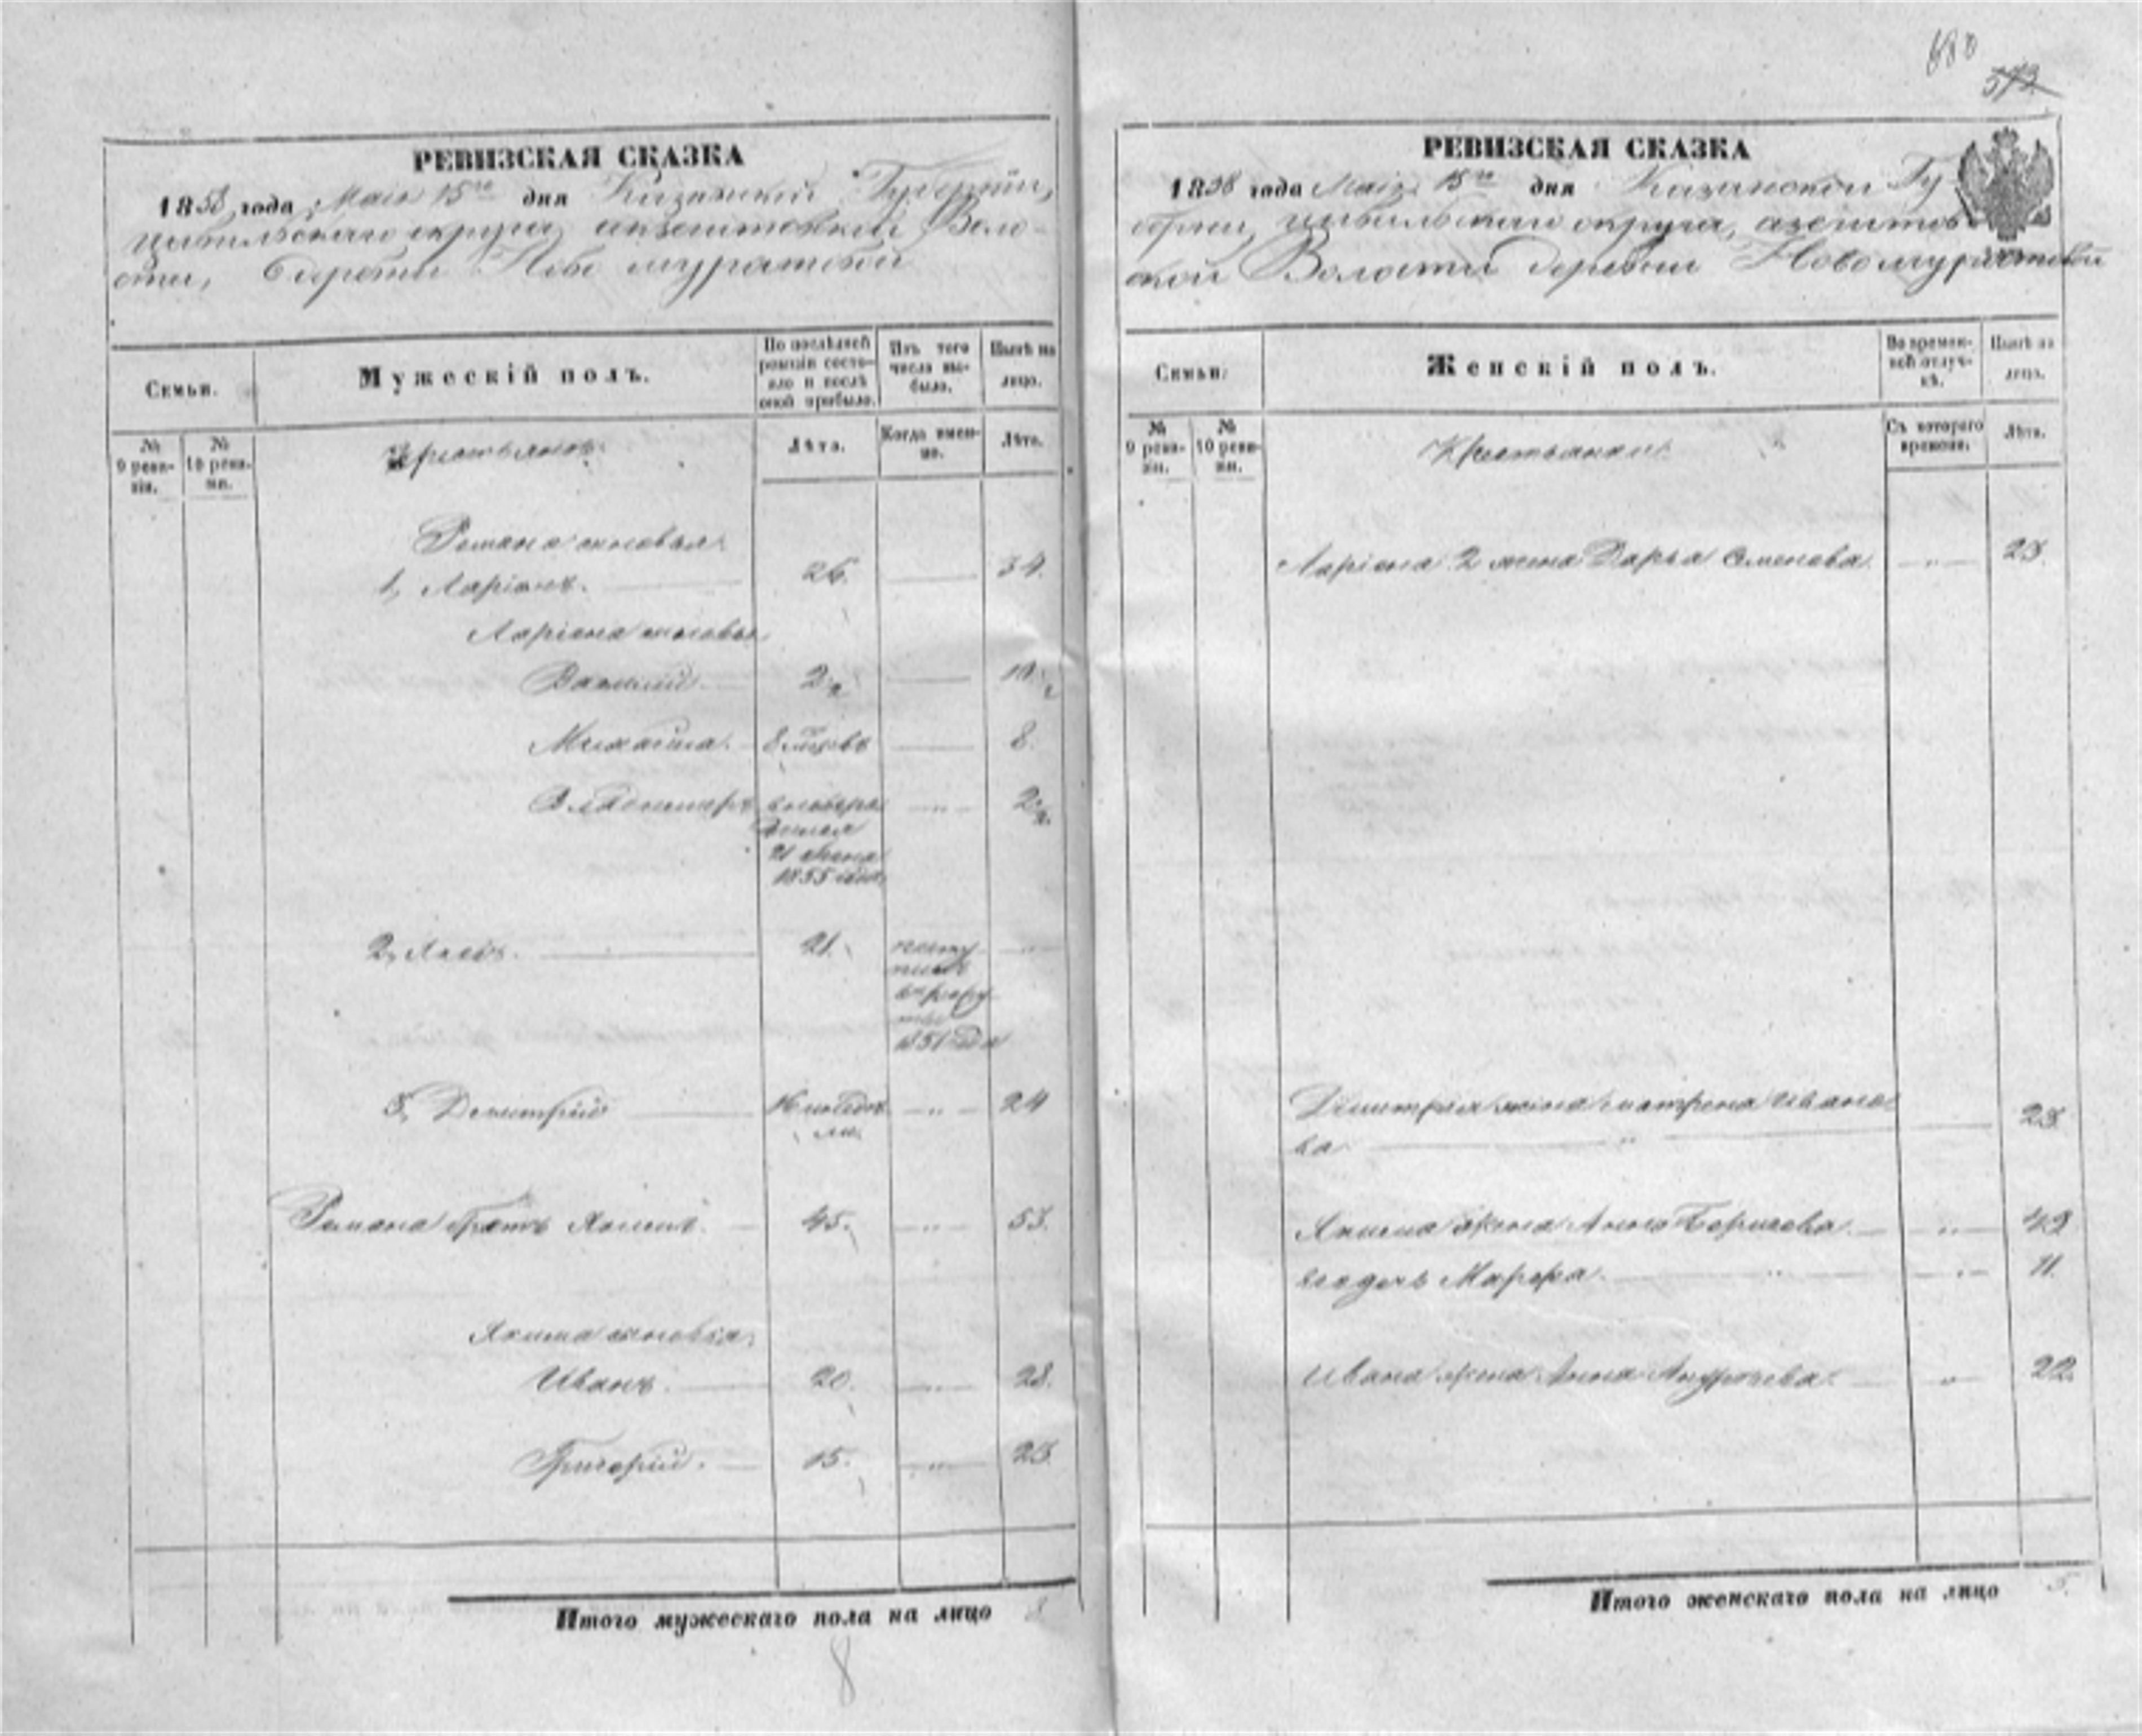 680
573
РЕВИЗСКАЯ СКАЗКА
1858 года Маія 15го дня Казанской Губерніи,
Цивильскаго округа, Волο-
сти, деревни Ново муратовой
Семьи.
Мужескій полъ.
По послѣдней ревизіи состояло и послѣ оной прибыло.
Изъ того числа выбыло.
Нынѣ на лицо.
№ 9 ревизіи.
№ 10 ревизіи.
Лѣта.
Когда именно.
Лѣта.
Романа сыновья
1, Ларіонъ. 26. 34.
Ларіона сыновья
Василий 2 10
Михайла. 8
Владимиръ 2
1855 года
2, Яковъ. 21.
1851 года
3, Димитрий 24
Романа братъ Якимъ 45. 53.
Якима сыновья
Иванъ. 20. 28.
Григорий. 15. 23
Итого мужескаго пола на лицо 8
8
РЕВИЗСКАЯ СКАЗКА
1858 года Маія 15го дня Казанской Гу-
берніи, Цивильскаго округа,
ской Волости деревни Новомуратовой
Семьи.
Женскій полъ.
Во временной отлучкѣ.
Нынѣ на лицо.
№ 9 ревизіи.
№ 10 ревизіи.
Крестьянки
Съ котораго времени.
Лѣта.
Ларіона 2 жена Дарья Семенова 23.
Димитрия жена матрена Ивано-
ва 23.
Якима жена Анна Борисова 49
его дочь Марфа. 11.
Ивана жена Анна Андреева. 22.
Итого женскаго пола на лицо 5.